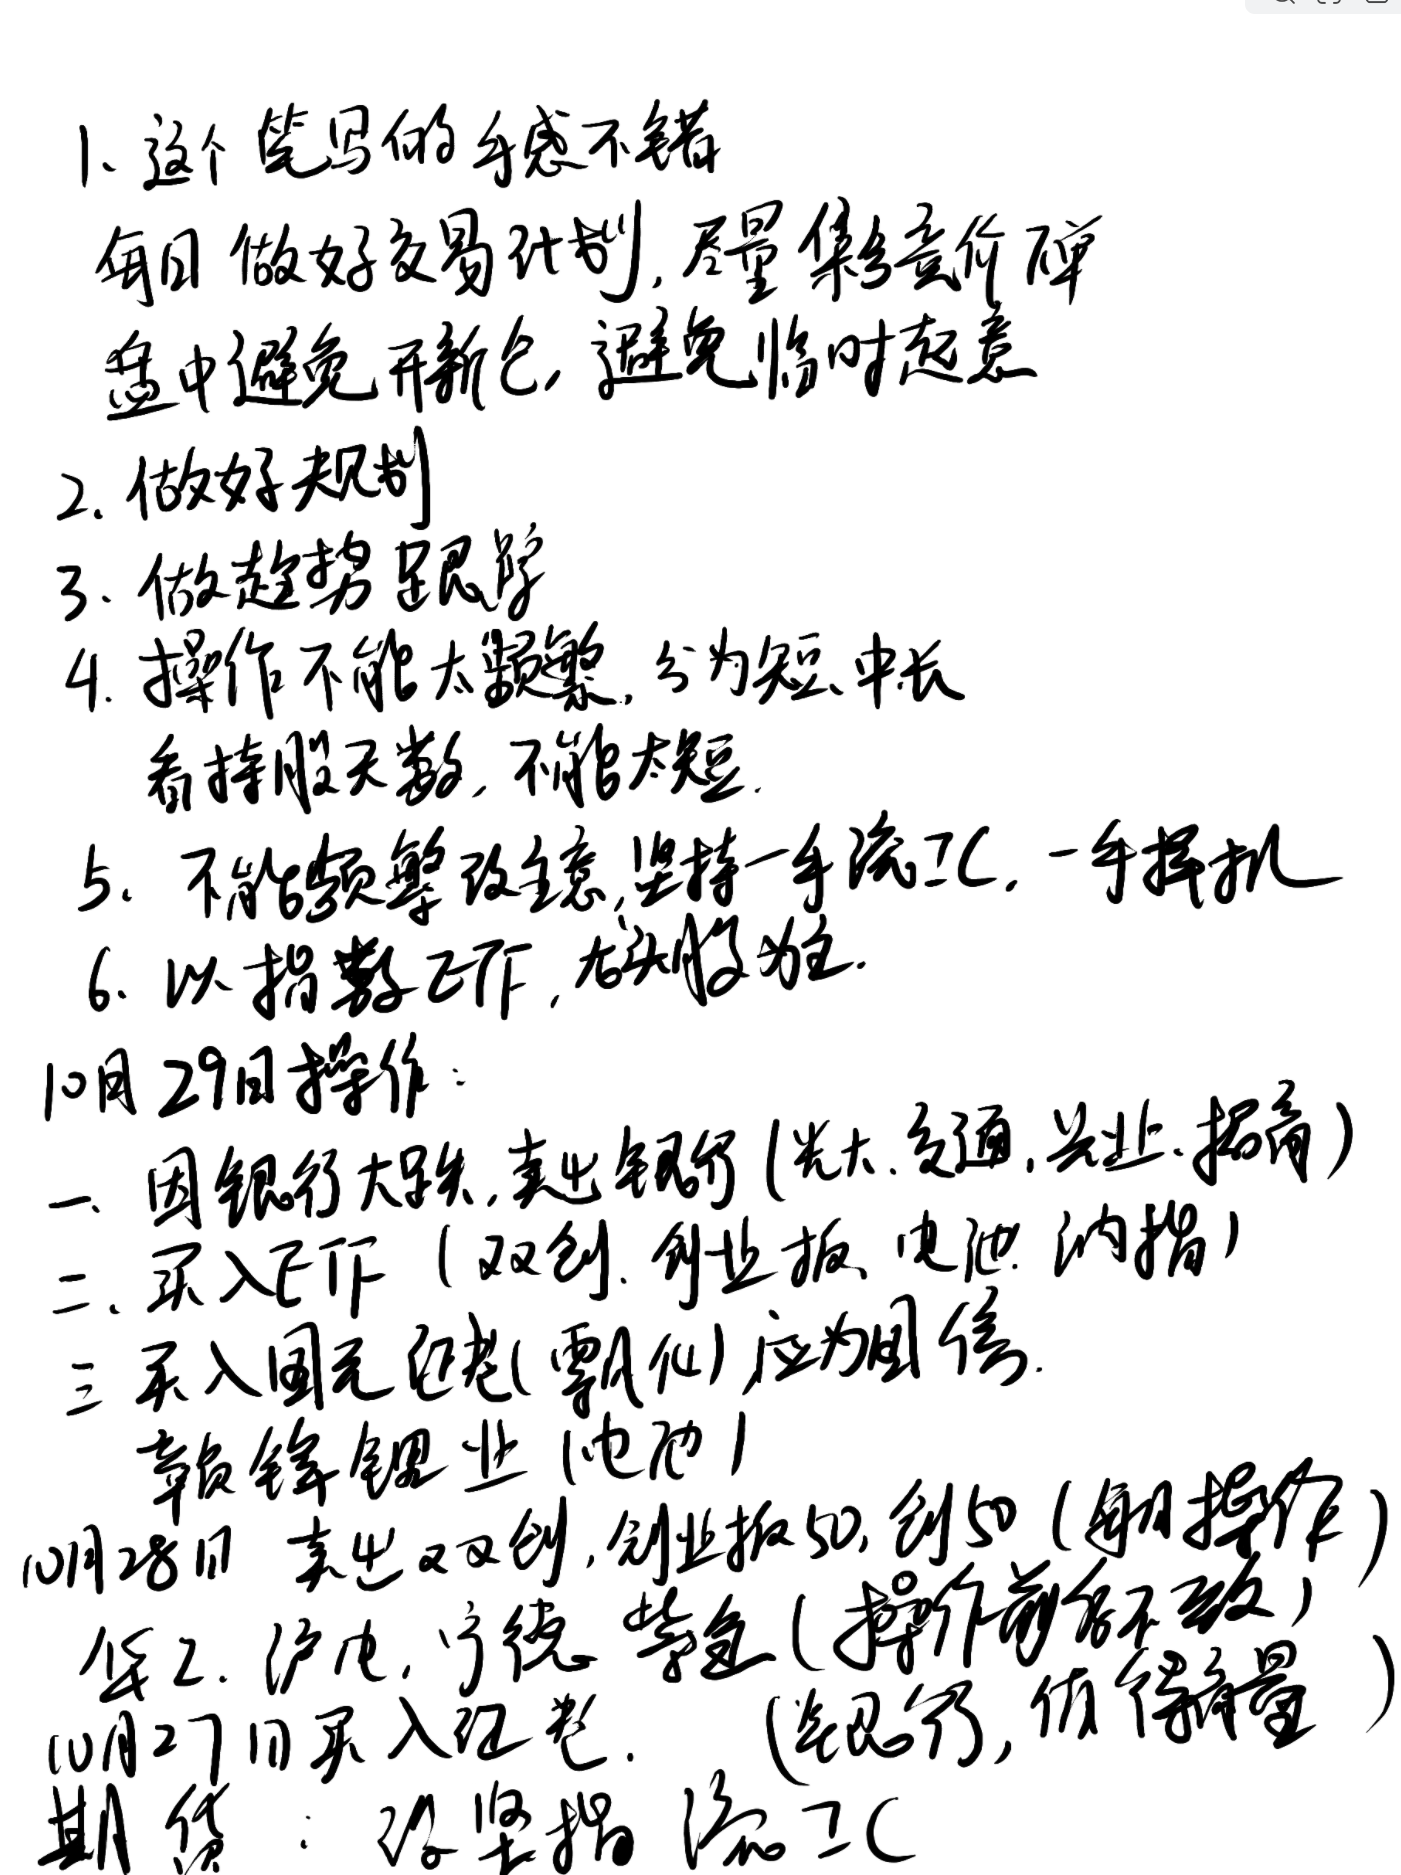 1、这个笔写的手感不错
每日做好交易计划,尽量集合竞价下单
盘中避免开新仓,避免临时起意
2. 做好规划
3. 做趋势跟踪
4. 操作不能太频繁,分为短、中、长
看持股天数,不能太短.
5. 不能频繁改主意,坚持一手滚IC,一手择机
6. 以指数ETF,龙头股为主.
10月29日操作:
一、因银行大跌,卖出银行(光大、交通、兴业、招商)
二、买入ETF(双创、创业板、电池、纳指)
三 买入国元证卷(飘仙)应为国信.
赣锋锂业(电池)
10月28日 卖出双创,创业板50,创50(每日操作)
沪电,宁德 紫金(操作前后不一致)
10月27日买入证卷. (银行,值得商量)
期货:没坚持滚IC